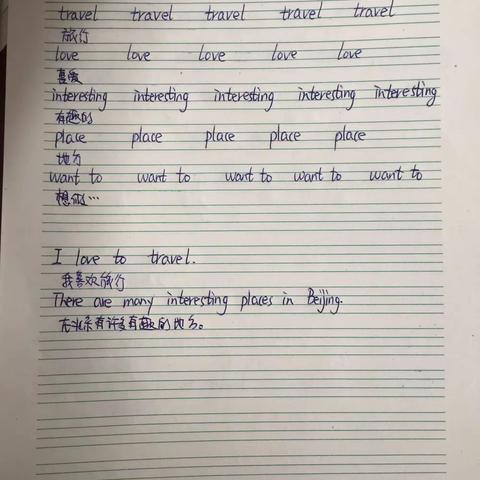 travel travel travel travel travel
旅行
love love love love love
喜爱
interesting interesting interesting interesting interesting
有趣的
place place place place place
地方
want to want to want to want to want to
想做…
I love to travel.
我喜欢旅行
There are many interesting places in Beijing.
在北京有许多有趣的地方。